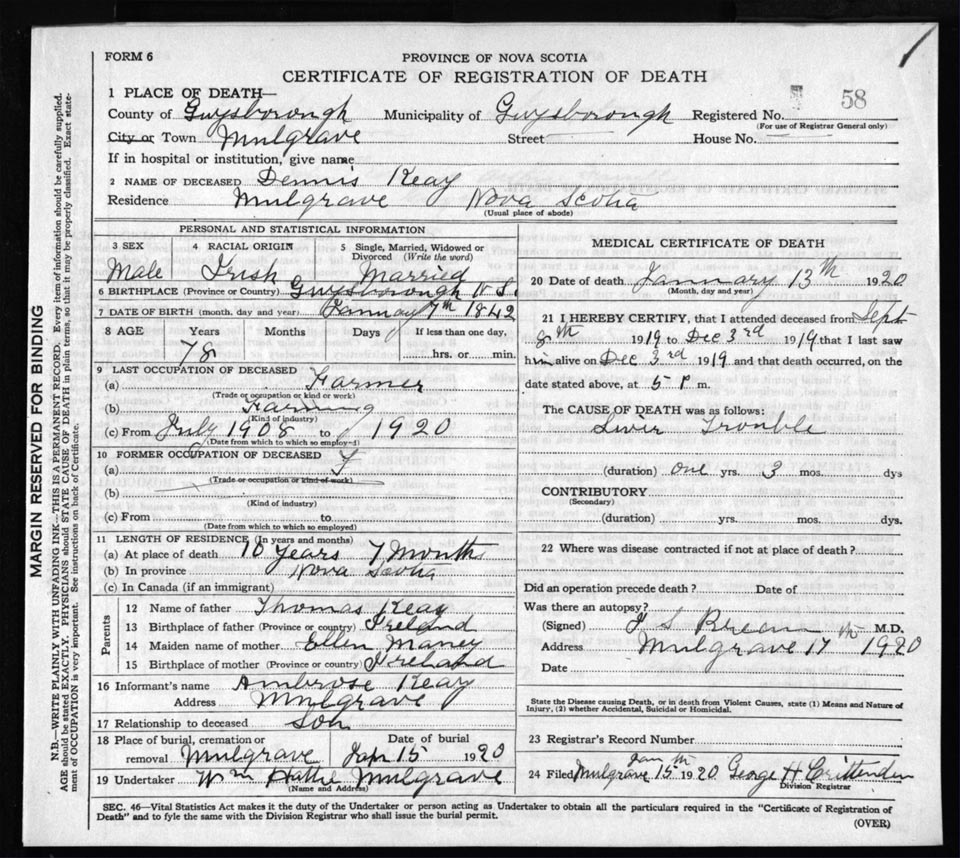 FORM 6
PROVINCE OF NOVA SCOTIA
CERTIFICATE OF REGISTRATION OF DEATH
58
1 PLACE OF DEATH—
County of Guysborough Municipality of Guysborough Registered No.
(For use of Registrar General only)
City or Town Mulgrave Street House No.
If in hospital or institution, give name
2 NAME OF DECEASED Dennis Keay
Residence Mulgrave Nova Scotia
(Usual place of abode)
PERSONAL AND STATISTICAL INFORMATION
3 SEX Male
4 RACIAL ORIGIN Irish
5 Single, Married, Widowed or Divorced (Write the word) Married
6 BIRTHPLACE (Province or Country) Guysborough N S.
7 DATE OF BIRTH (month, day and year) January 7th 1842
8 AGE Years Months Days If less than one day,
78 hrs. or min.
9 LAST OCCUPATION OF DECEASED
(a) Farmer
(Trade or occupation or kind or work)
(b) Farming
(Kind of industry)
(c) From July 1908 to 1920
(Date from which to which so employed)
10 FORMER OCCUPATION OF DECEASED
(a)
(Trade or occupation or kind of work)
(b)
(Kind of industry)
(c) From to
(Date from which to which so employed)
11 LENGTH OF RESIDENCE (In years and months)
(a) At place of death 10 Years 7 Months
(b) In province Nova Scotia
(c) In Canada (if an immigrant)
Parents
12 Name of father Thomas Keay
13 Birthplace of father (Province or country) Ireland
14 Maiden name of mother Ellen Maney
15 Birthplace of mother (Province or country) Ireland
16 Informant's name Ambrose Keay
Address Mulgrave
17 Relationship to deceased Son
18 Place of burial, cremation or removal Mulgrave
Date of burial Jan 15 1920
19 Undertaker Wm Hattie Mulgrave
(Name and Address)
MEDICAL CERTIFICATE OF DEATH
20 Date of death January 13th 1920
(Month, day and year)
21 I HEREBY CERTIFY, that I attended deceased from Sept
8th 1919 to Dec 3rd 1919 that I last saw
him alive on Dec 3rd 1919 and that death occurred, on the
date stated above, at 5 P m.
The CAUSE OF DEATH was as follows:
Liver Trouble
(duration) one yrs. 3 mos. dys
CONTRIBUTORY
(Secondary)
(duration) yrs. mos. dys.
22 Where was disease contracted if not at place of death?
Did an operation precede death? Date of
Was there an autopsy?
(Signed) M.D.
Address Mulgrave 17th 1920
Date
State the Disease causing Death, or in death from Violent Causes, state (1) Means and Nature of
Injury, (2) whether Accidental, Suicidal or Homicidal.
23 Registrar's Record Number
24 Filed Mulgrave Jan 15th 1920 George H Crittenden
Division Registrar
SEC. 46—Vital Statistics Act makes it the duty of the Undertaker or person acting as Undertaker to obtain all the particulars required in the "Certificate of Registration of
Death" and to fyle the same with the Division Registrar who shall issue the burial permit.
(OVER)
MARGIN RESERVED FOR BINDING
N.B.—WRITE PLAINLY WITH UNFADING INK—THIS IS A PERMANENT RECORD. Every item of information should be carefully supplied.
AGE should be stated EXACTLY. PHYSICIANS should STATE CAUSE OF DEATH in plain terms, so that it may be properly classified. Exact state-
ment of OCCUPATION is very important. See instructions on back of Certificate.